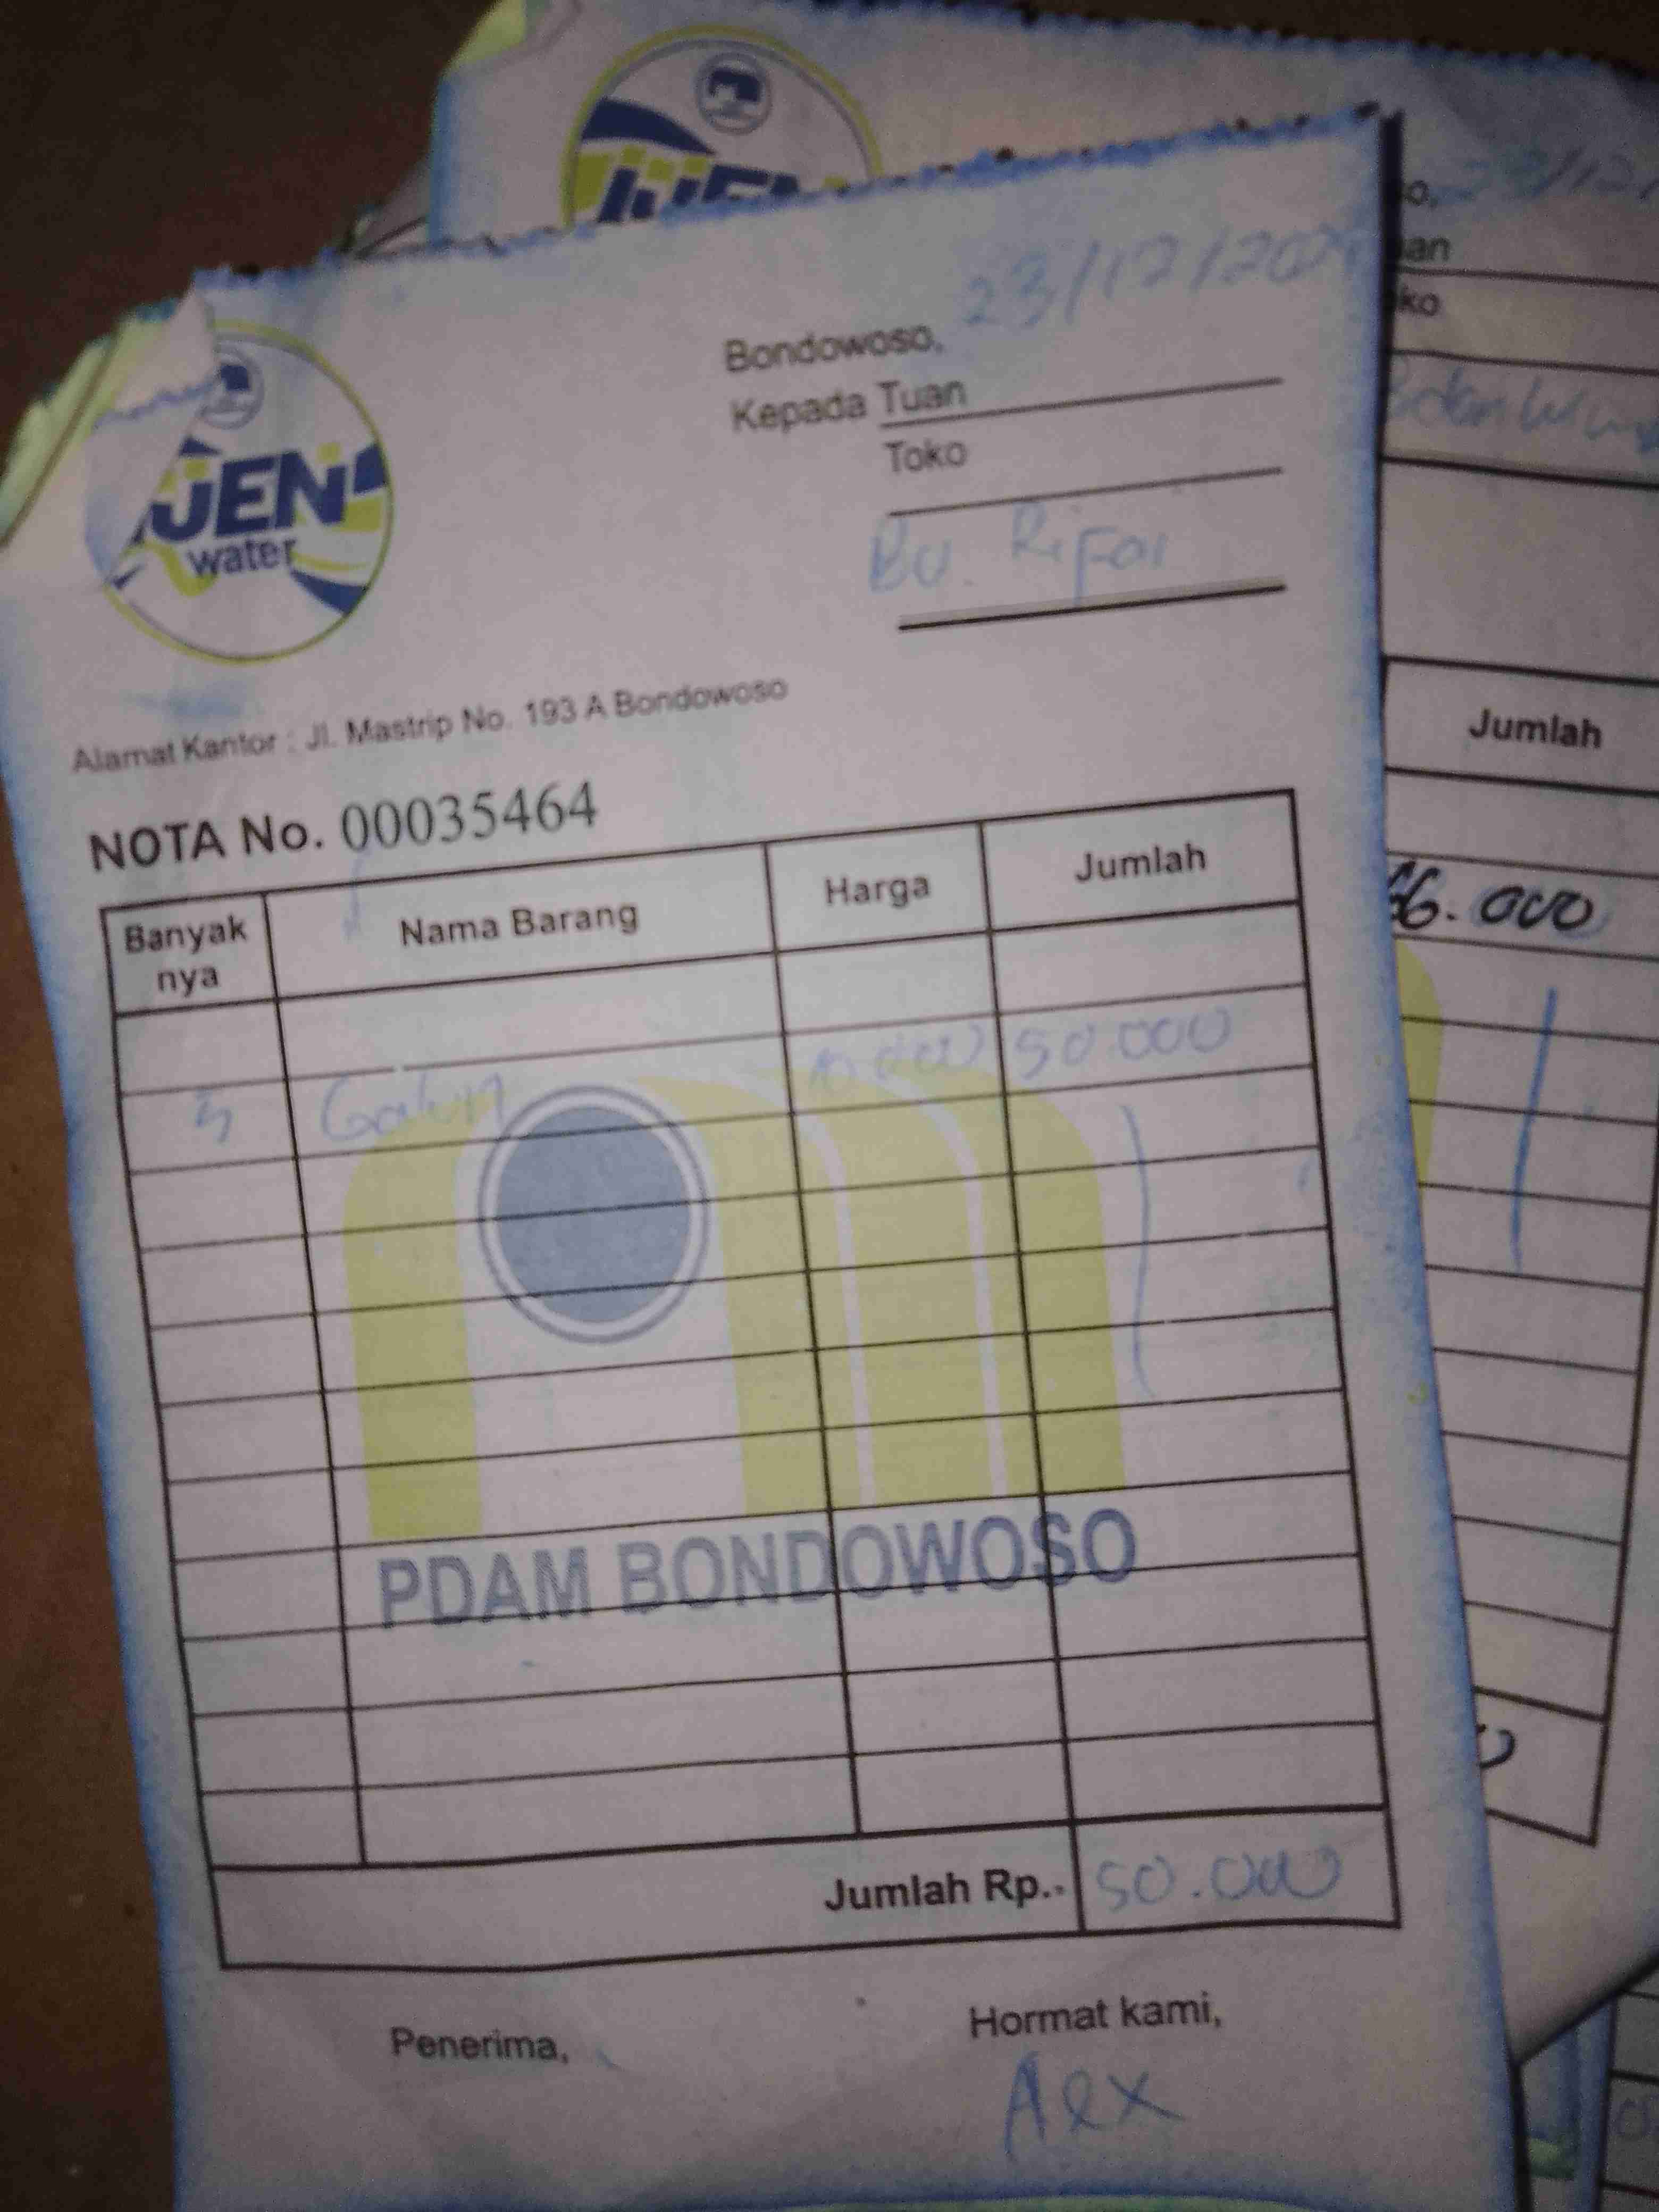 Bondowoso, 23/12/202
Kepada Tuan
Toko
Bu. Rifai
JEN
water
Alamat Kantor : Jl. Mastrip No. 193 A Bondowoso
NOTA No. 00035464
Banyak nya Nama Barang Harga Jumlah
5 Galon 10.000 50.000
PDAM BONDOWOSO
Jumlah Rp.- 50.000
Penerima, Hormat kami,
Alex
Jumlah
66.000